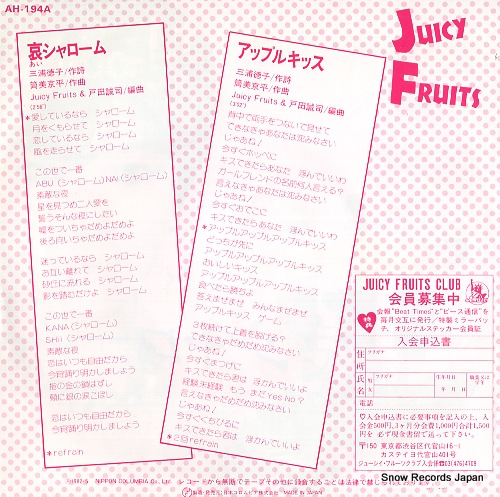 AH-194A
哀シャローム
あい
三浦徳子/作詩
筒美京平/作曲
Juicy Fruits & 戸田誠司/編曲
*愛しているなら シャローム
月をくもらせて シャローム
恋しているなら シャローム
風を走らせて シャローム
この世で一番
ABU(シャローム)NAI(シャローム)
素敵な夜
星を見つめ二人愛を
誓うそんな夜にしたい
嘘をついちゃだめよだめよ
後ろ向いちゃだめよだめよ
迷っているなら シャローム
お互い離れて シャローム
砂丘に流れる シャローム
影を踏むだけよ シャローム
この世で一番
KANA(シャローム)
SHII(シャローム)
素敵な夜
恋はいつも自由だから
今宵踊り明かしましょう
指の金の鎖はずし
頬に銀の涙こぼし
恋はいつも自由だから
今宵踊り明かしましょう
*refrain
アップルキッス
三浦徳子/作詩
筒美京平/作曲
Juicy Fruits & 戸田誠司/編曲
背中で両手をつないで見せて
できなきゃあなたは沈みなさい
じゃあね!
今すぐホッペに
キスできたらあなた 浮んでいいわ
ガールフレンドの名前何人言える?
言えなきゃあなたは沈みなさい
じゃあね!
今すぐおでこに
キスできたらあなた 浮んでいいわ
*アップルアップルアップルキッス
どっちが先に
アップルアップルアップルキッス
おいしいキッス
アップルアップルアップルキッス
食べたら勝ちよ
答えませませ みんなませませ
アップルキッス ゲーム
3枚続けて上着を脱げる?
できなきゃだめだめ沈みなさい
じゃあね!
今すぐまつげに
キスできたら君は 浮かんでいいよ
経験未経験 もう まだ Yes No?
言えなきゃだめだめ沈みなさい
じゃあね!
今すぐくちびるに
キスできたら君は 浮かんでいいよ
*2回refrain
JUICY
FRUITS
JUICY FRUITS CLUB
会員募集中
特典
会報"Beat Times"と"ピース通信"を
毎月交互に発行/特製ミラーバッ
チ、オリジナルステッカー会員証
入会申込書
住所
フリガナ
氏名
フリガナ
生年月日
電話
♡入会申込書に必要事項を記入の上、入
会金500円、3ヶ月分会費1,000円合計1,500
円を必ず現金書留で送って下さい。
〒150 東京都渋谷区代官山16-1
カステイヨ代官山401号
ジューシィ・フルーツクラブ入会係☎03(476)4769
NIPPON COLUMBIA Co., Ltd.
レコードから無断でテープその他に録音することは法律で禁じられています。
MADE IN JAPAN
Snow Records Japan